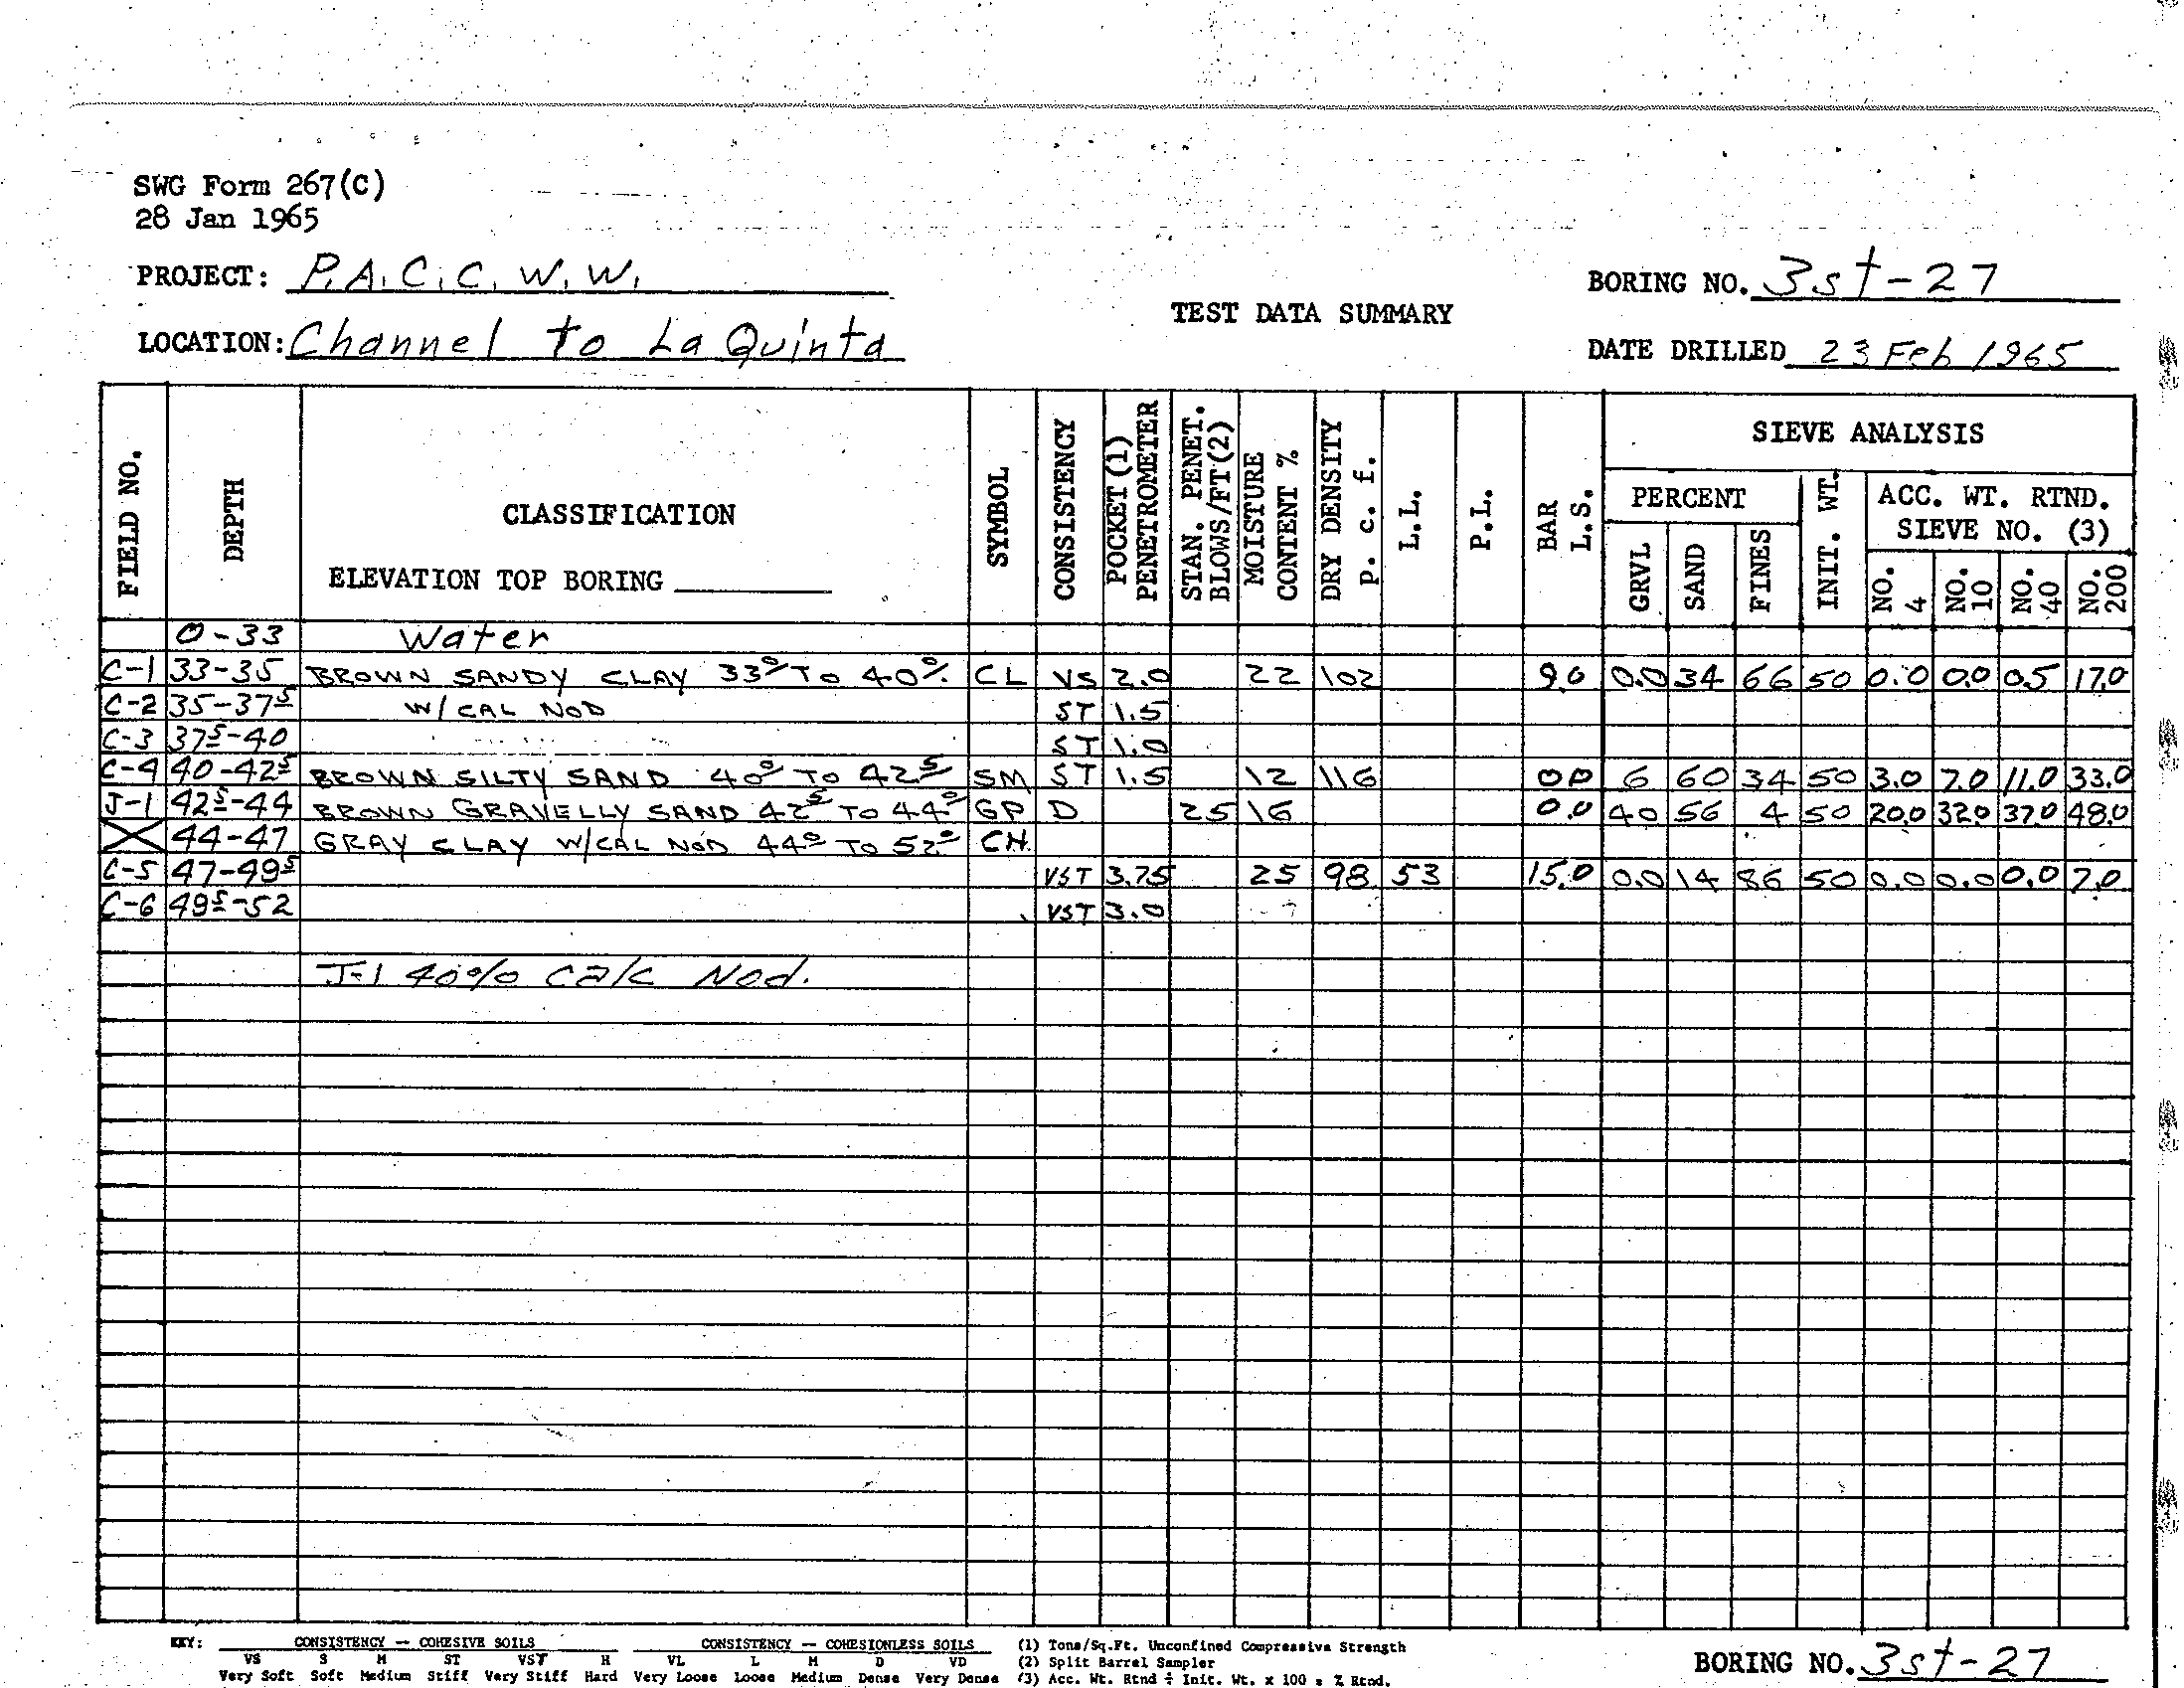 SWG Form 267(C)
28 Jan 1965
PROJECT: P.A.C.C.W.W.
BORING NO. 3st-27
TEST DATA SUMMARY
LOCATION: Channel to La Quinta
DATE DRILLED 23 Feb 1965
FIELD NO. DEPTH CLASSIFICATION SYMBOL CONSISTENCY POCKET (1) PENETROMETER STAN. PENET. BLOWS/FT(2) MOISTURE CONTENT % DRY DENSITY p. c. f. L.L. P.L. BAR L.S. SIEVE ANALYSIS
PERCENT INIT. WT. ACC. WT. RTND. SIEVE NO. (3)
ELEVATION TOP BORING
GRVL SAND FINES NO. 4 NO. 10 NO. 40 NO. 200
0-33 Water
C-1 33-35 BROWN SANDY CLAY 33⁰ TO 40⁰. CL VS 2.0 22 102 9.0 0.0 34 66 50 0.0 0.0 0.5 17.0
C-2 35-37⁵ W/CAL NOD ST 1.5
C-3 37⁵-40 ST 1.0
C-4 40-42⁵ BROWN SILTY SAND 40⁰ TO 42⁵ SM ST 1.5 12 116 0.0 6 60 34 50 3.0 7.0 11.0 33.0
J-1 42⁵-44 BROWN GRAVELLY SAND 42⁵ TO 44⁰ GP D 25 16 0.0 40 56 4 50 20.0 32.0 37.0 48.0
44-47 GRAY CLAY W/CAL NOD 44⁰ TO 52⁰ CH
C-5 47-49⁵ VST 3.75 25 98 53 15.0 0.0 14 86 50 0.0 0.0 0.0 7.0
C-6 49⁵-52 VST 3.0
J-1 40% Calc Nod.
KEY: CONSISTENCY — COHESIVE SOILS CONSISTENCY — COHESIONLESS SOILS (1) Tons/Sq.Ft. Unconfined Compressive Strength
VS S M ST VST H VL L M D VD (2) Split Barrel Sampler
Very Soft Soft Medium Stiff Very Stiff Hard Very Loose Loose Medium Dense Very Dense (3) Acc. Wt. Rtnd ÷ Init. Wt. x 100 = % Rtnd.
BORING NO. 3st-27